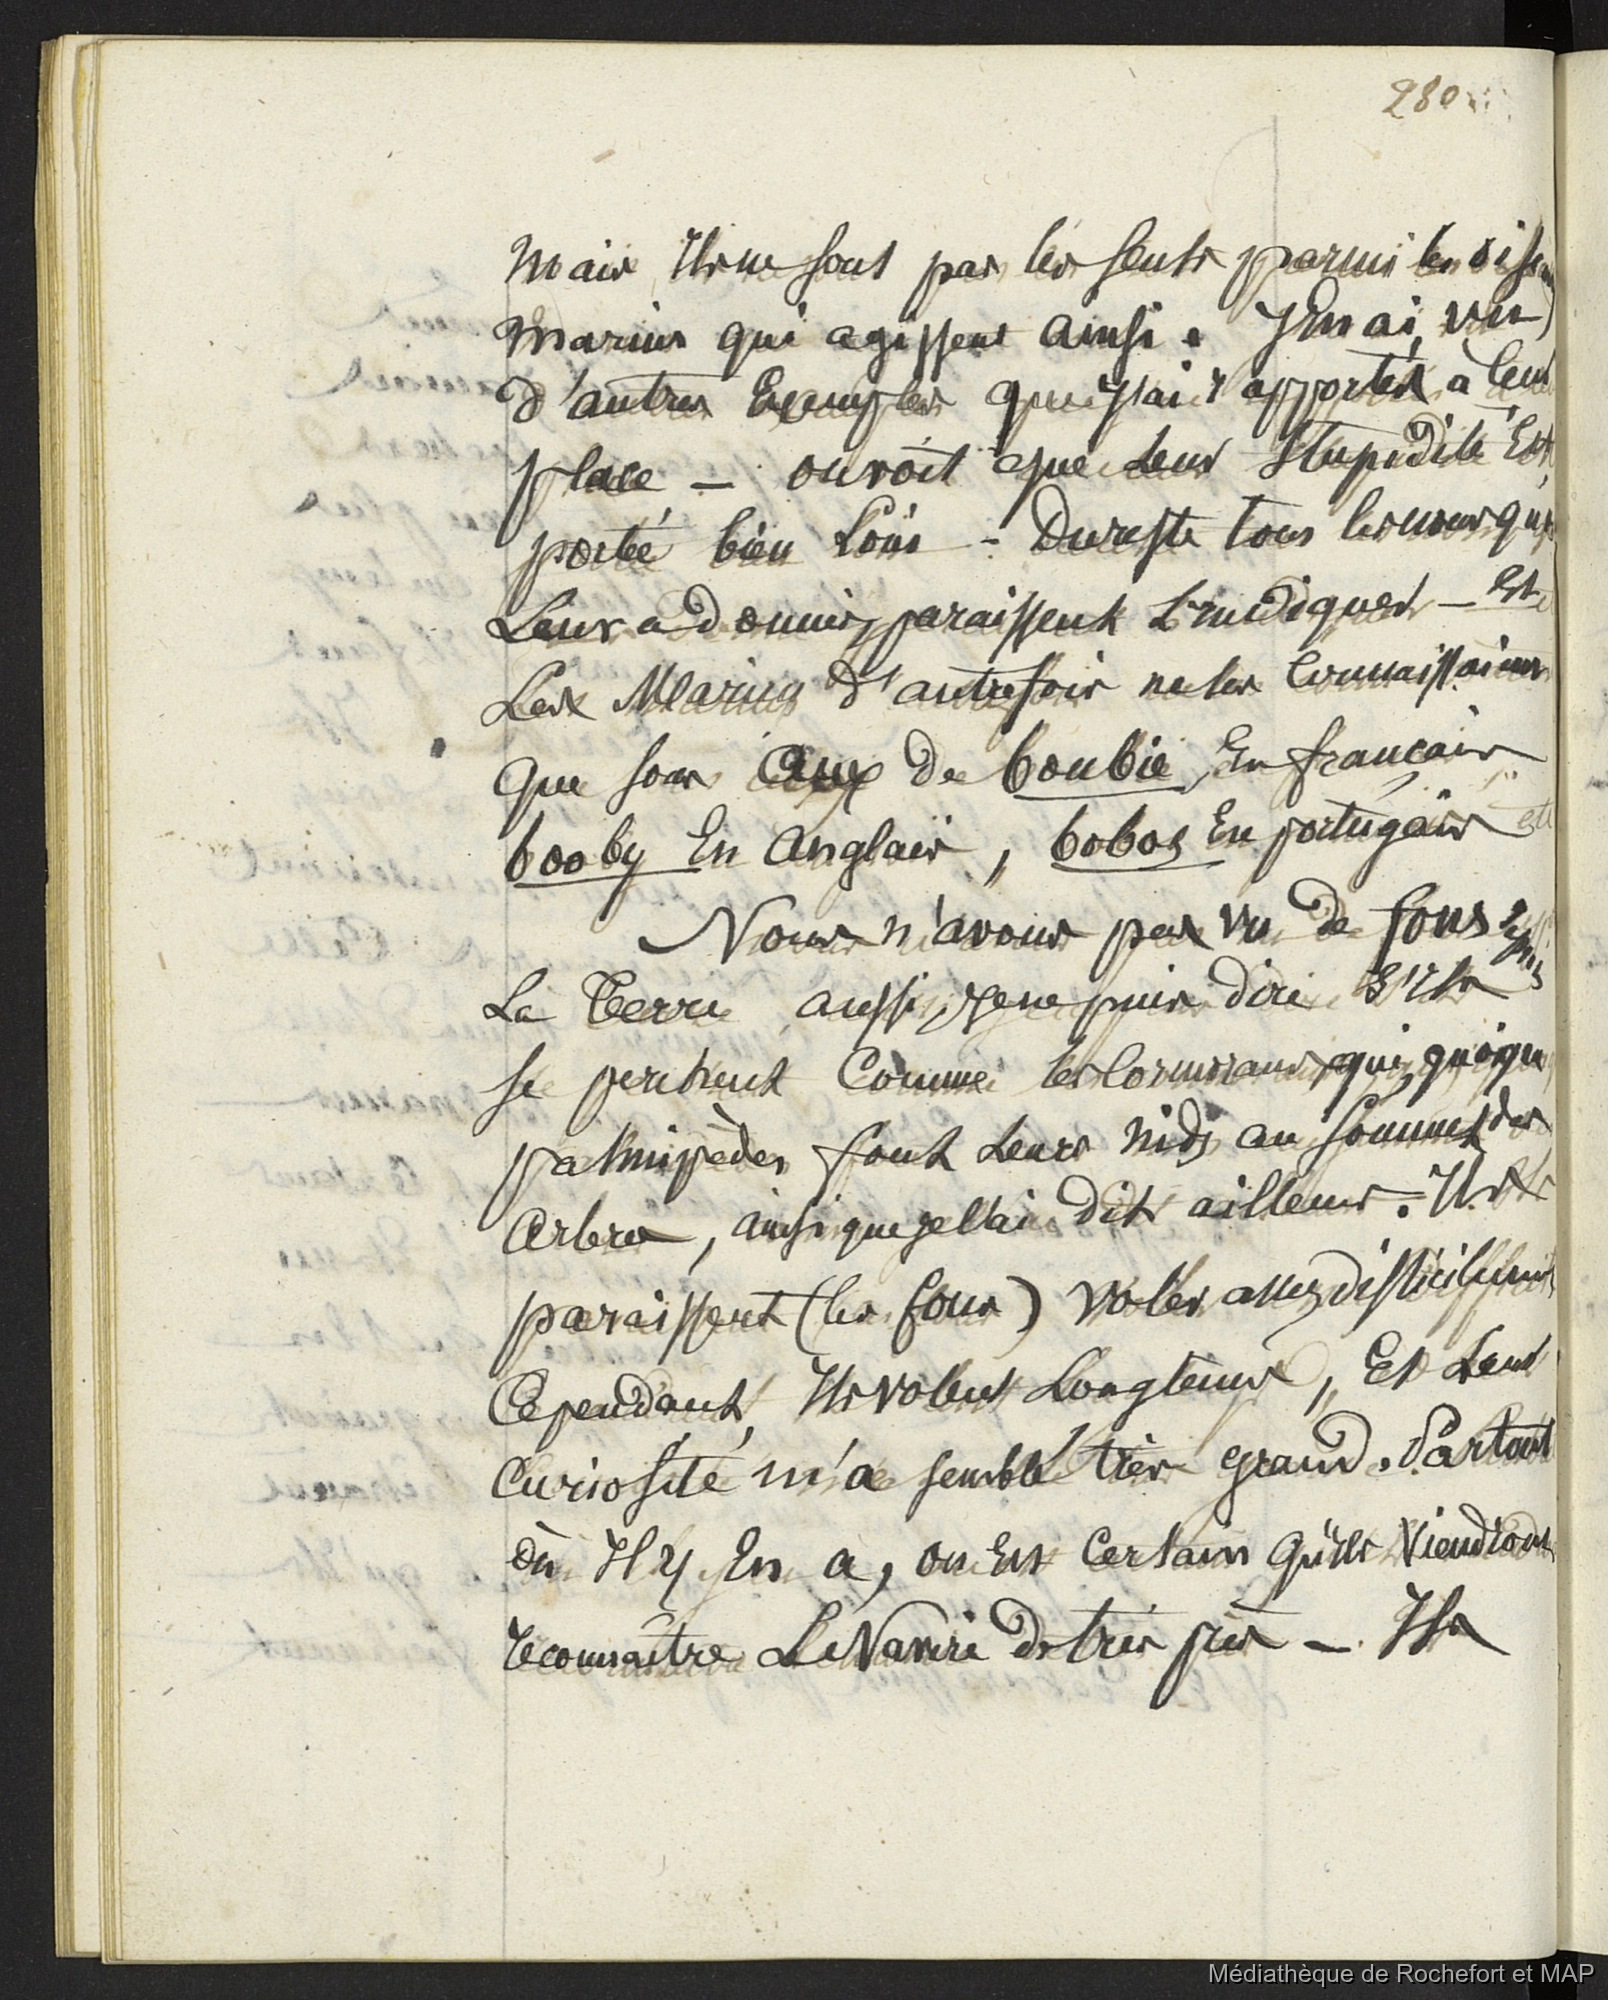 280
mais Ils ne sont pas les seuls parmi les oiseaux
marins qui agissent ainsi. J'En ai vu
d'autres Exemples que j'ai rapportés à leur
place — on voit que leur Stupidité Est
portée bien loin - Du reste tous les noms qu'on
Leur a donnés paraissent L'indiquer — Et
Les Marins d'autrefois ne les Connaissaient
que sous Ceux de boubie En français
booby En Anglais, bobos En portugais etc
Nous n'avons pas vu de fous
La Terre aussi je ne puis dire S'ils
se perchent Comme les Cormorans qui, quoique
palmipèdes font Leurs nids au sommet des
Arbres, ainsi que je l'ai dit ailleurs. Ils
paraissent (les fous) voler assez difficilement
Cependant Ils volent Longtemps, Et Leur
Curiosité m'a semblé très grand. Partout
où Il y En a, on Est Certain qu'ils Viendront
reconnaître Le Navire de très près — Ils
Médiathèque de Rochefort et MAP